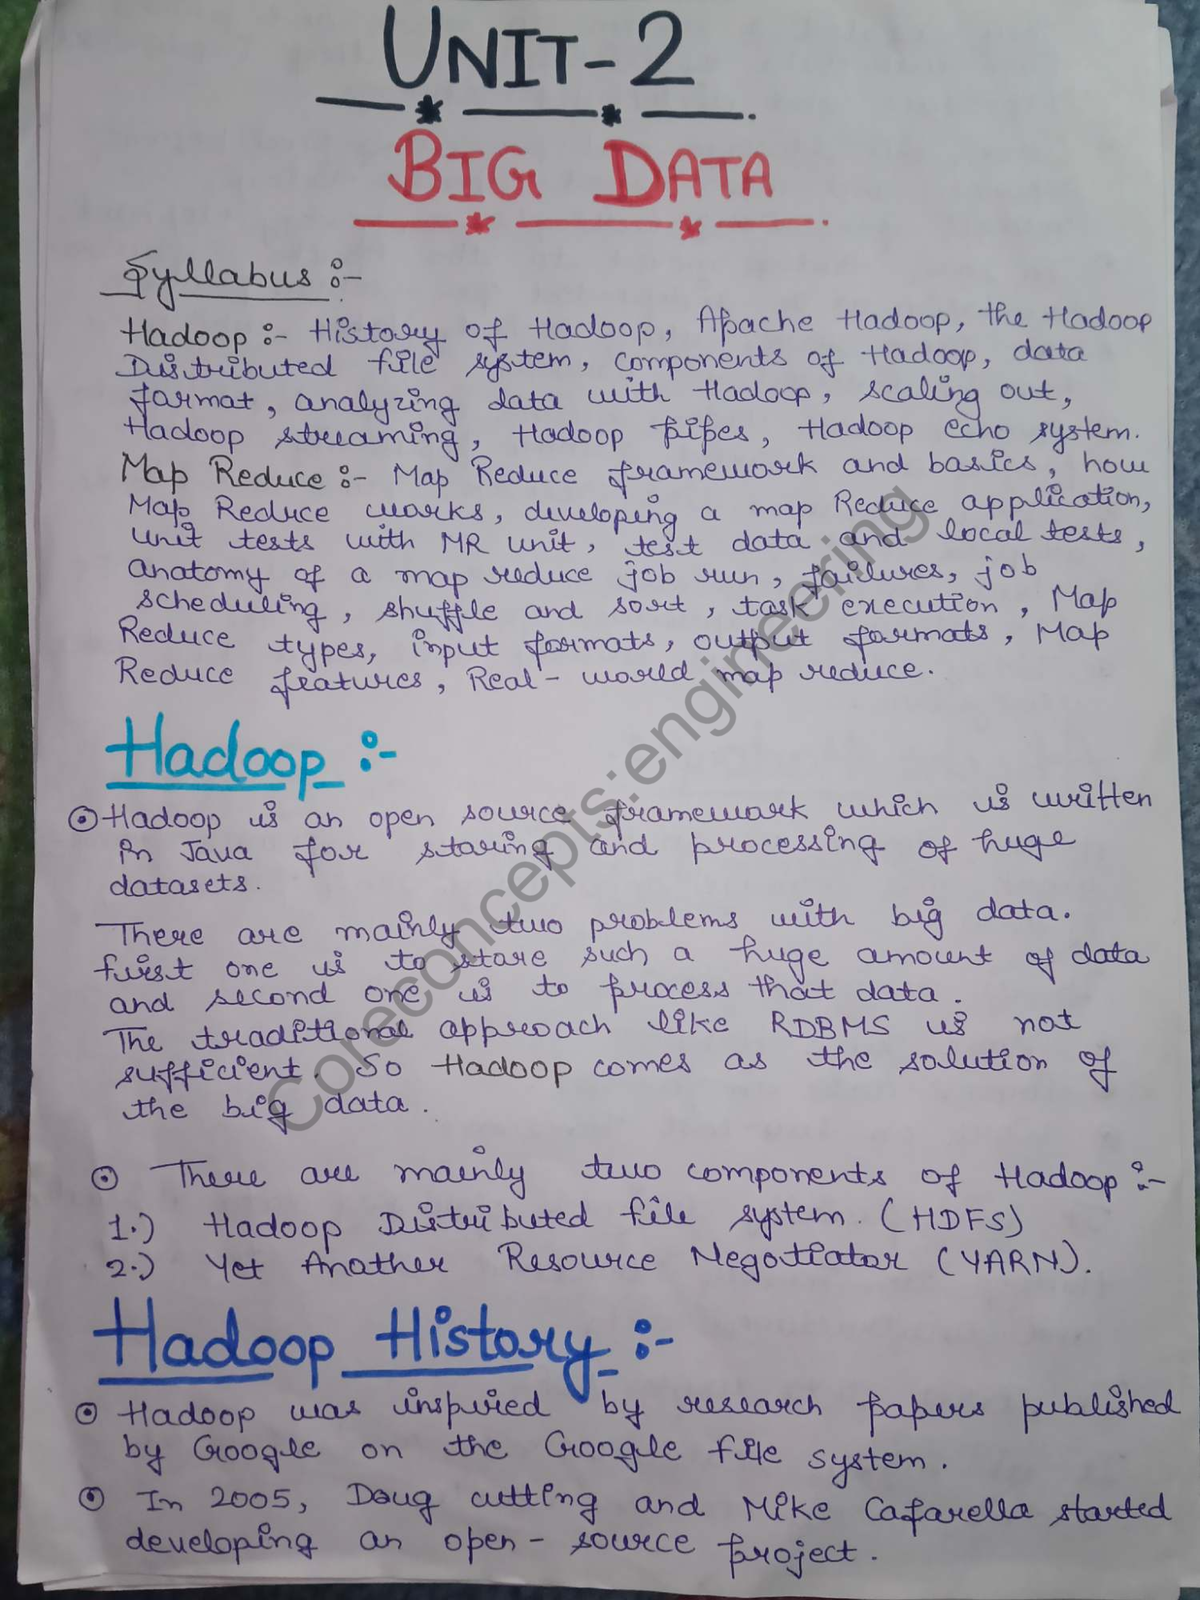 UNIT-2
BIG DATA
Syllabus :-
Hadoop :- History of Hadoop, Apache Hadoop, the Hadoop
Distributed file system, components of Hadoop, data
format, analyzing data with Hadoop, scaling out,
Hadoop streaming, Hadoop pipes, Hadoop echo system.
Map Reduce :- Map Reduce framework and basics, how
Map Reduce works, developing a map Reduce application,
unit tests with MR unit, test data and local tests,
anatomy of a map reduce job run, failures, job
scheduling, shuffle and sort, task execution, Map
Reduce types, input formats, output formats, Map
Reduce features, Real-world map reduce.
Hadoop :-
Hadoop is an open source framework which is written
in Java for storing and processing of huge
datasets.
There are mainly two problems with big data.
first one is to store such a huge amount of data
and second one is to process that data.
The traditional approach like RDBMS is not
sufficient. So Hadoop comes as the solution of
the big data.
There are mainly two components of Hadoop :-
1.) Hadoop Distributed file system. (HDFS)
2.) Yet Another Resource Negotiator (YARN).
Hadoop History :-
Hadoop was inspired by research papers published
by Google on the Google file system.
In 2005, Doug cutting and Mike Cafarella started
developing an open-source project.
Coreconcepts.engineering